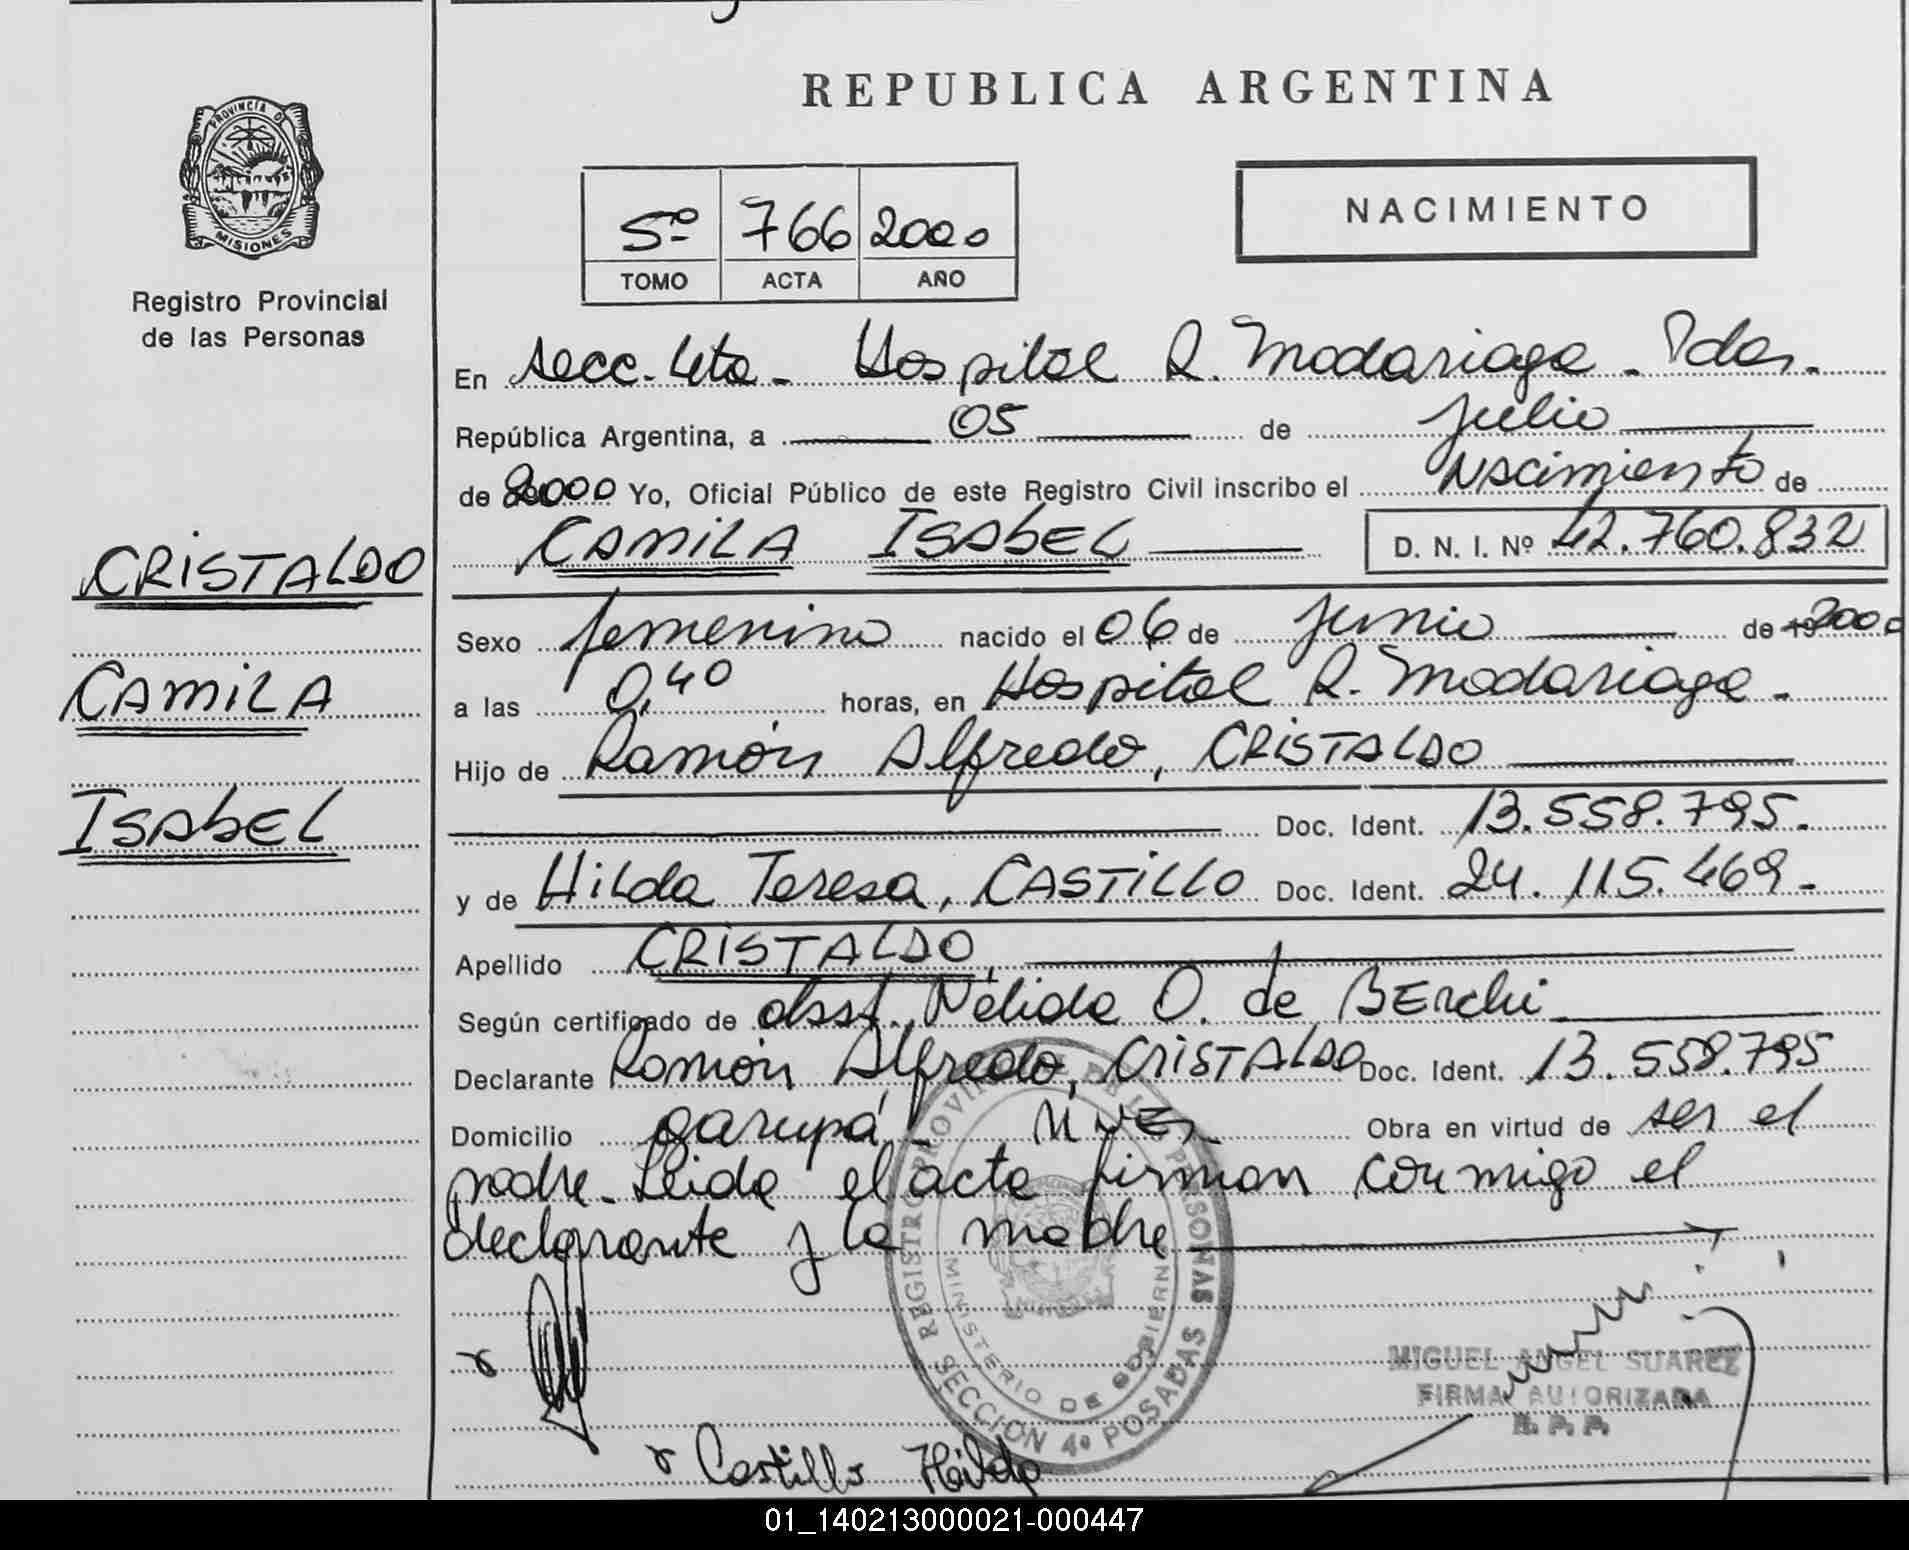 REPUBLICA ARGENTINA
PROVINCIA DE
MISIONES
Registro Provincial
de las Personas
5º 766 2000
TOMO ACTA AÑO
NACIMIENTO
En secc. 4ta - Hospital R. Madariaga - Pdas.
República Argentina, a 05 de julio
de 2000 Yo, Oficial Público de este Registro Civil inscribo el Nacimiento de
CAMILA ISABEL D. N. I. Nº 42.760.832
CRISTALDO
CAMILA
ISABEL
Sexo femenino nacido el 06 de junio de 19 2000
a las 0,40 horas, en Hospital R. Madariaga -
Hijo de Ramón Alfredo, CRISTALDO
Doc. Ident. 13.558.795.
y de Hilda Teresa, CASTILLO Doc. Ident. 24.115.469.-
Apellido CRISTALDO,
Según certificado de obst. Nélida O. de Berchi
Declarante Ramón Alfredo, CRISTALDO Doc. Ident. 13.558.795
Domicilio garupá - Mnes. Obra en virtud de ser el
padre. Leida el acta firman conmigo el
declarante y la madre
REGISTRO PROVINCIAL DE LAS PERSONAS
MINISTERIO DE GOBIERNO
SECCIÓN 4º POSADAS
MIGUEL ANGEL SUAREZ
FIRMA AUTORIZADA
R. P. P.
Castillo Hilda
01_140213000021-000447